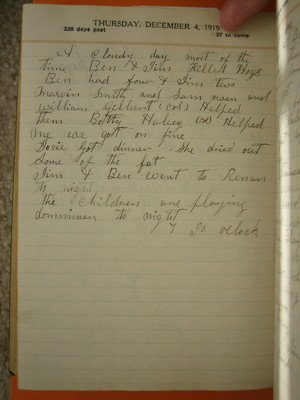 THURSDAY, DECEMBER 4, 1919
338 days past
27 to come
Cloudy day most of the
time Ben & Jim Killed Hogs
Ben had four & Jim two
Marvin Smith and Sam owen and
William Gilbert (col) Helped
them Betty Haley (col) Helped
me we got on fine
Rosie Got dinner She dried out
Some of the fat
Jim & Ben went to Renan
to night
the Children are playing
domminoes to night
7 30 oclock